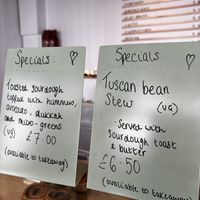 Specials:
Toasted sourdough
topped with hummus,
avocado, dukkah
and micro-greens.
(VG)
£7.00
(available to takeaway)
Specials
Tuscan bean
Stew
(VG)
- Served with
sourdough toast
& butter
£6.50
(available to takeaway)